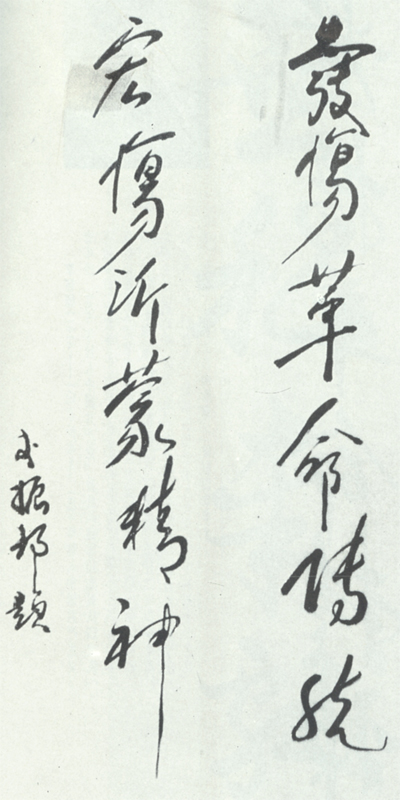 發揚革命傳統
宏揚沂蒙精神
振邦題